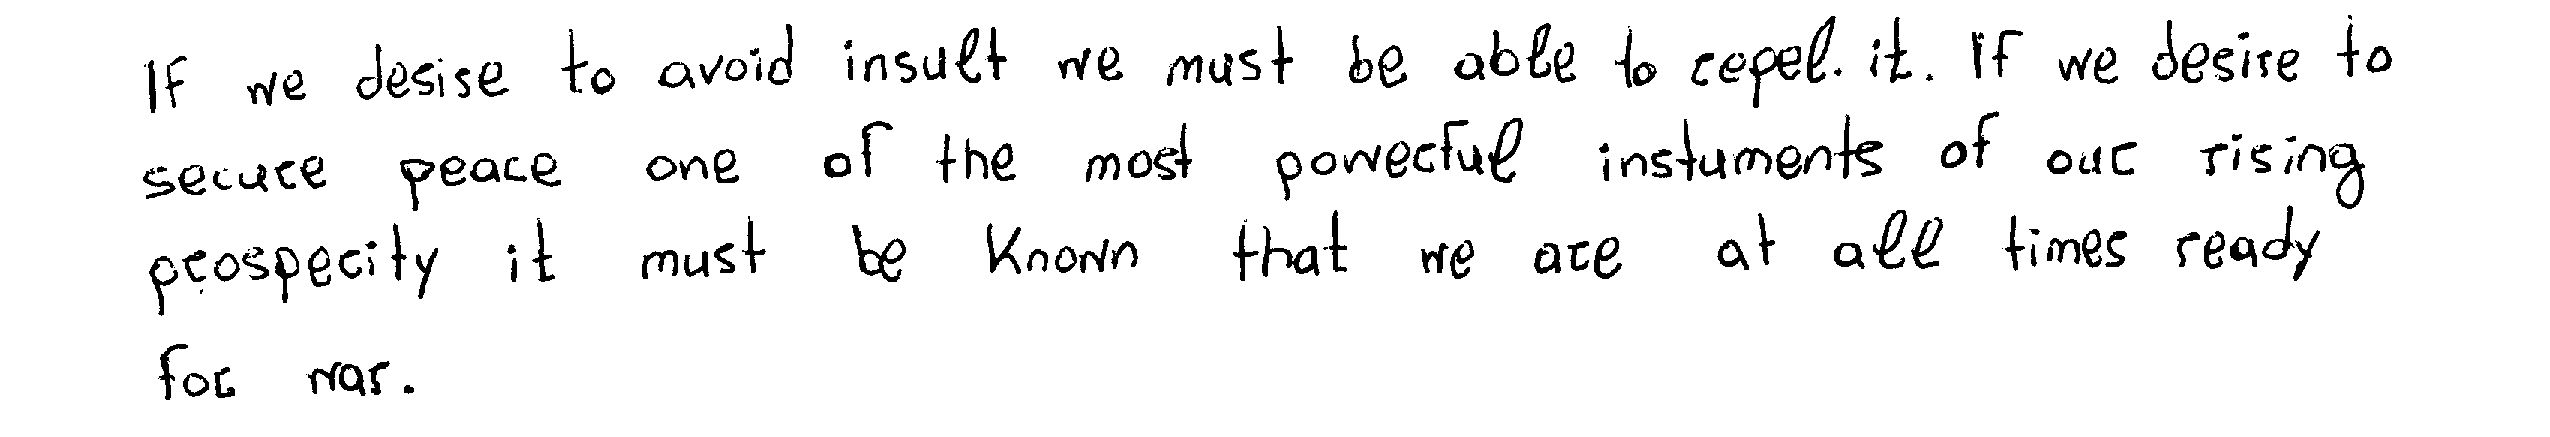 If we desire to avoid insult we must be able to repel. it. If we desire to
secure peace one of the most powerful instuments of our rising
prosperity it must be known that we are at all times ready
for war.